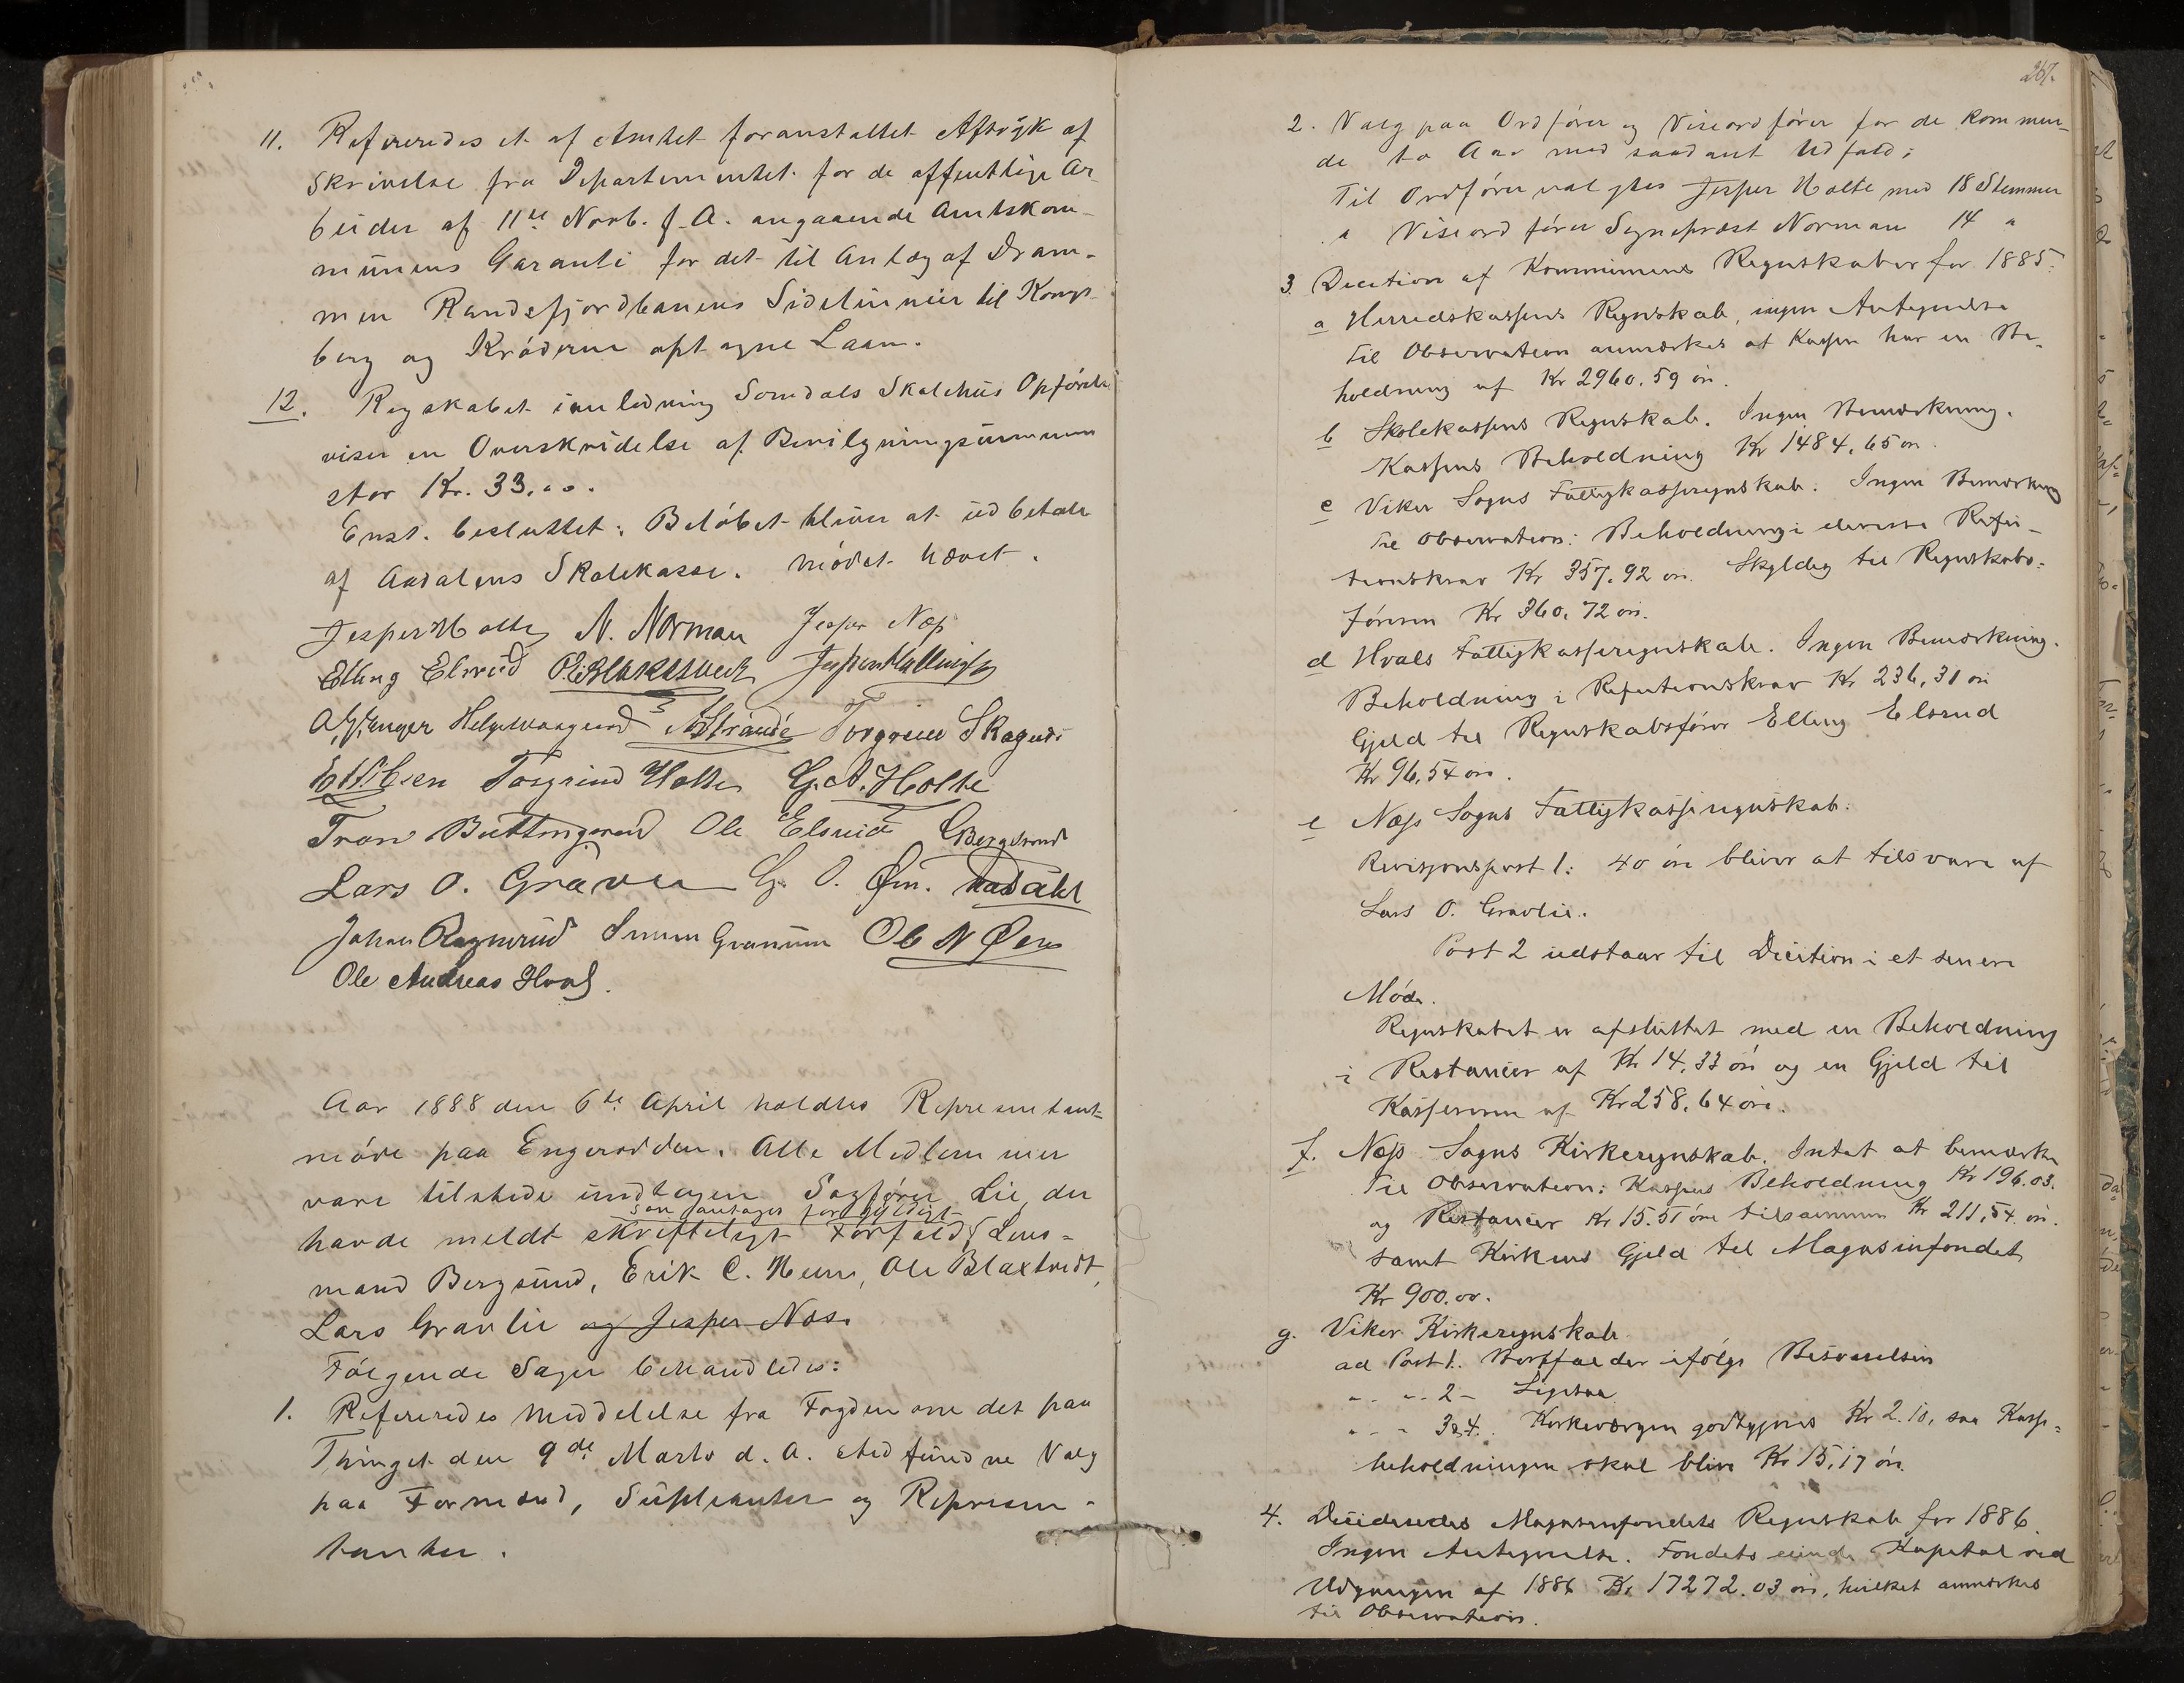 11. Refereredes et af Amtet foranstaltet Aftryk af
Skrivelse fra Departementet for de offentlige Ar-
beider af 11te Novb. f. A. angaaende Amtskom-
munens Garanti for det til Anlæg af Dram-
men Randsfjordbanens Sidelinier til Kongs-
berg og Krøderen optagne Laan.
12. Regskabet Somdals Skolehus Opførelse
viser en Overskridelse af Bevilgningssummen
stor Kr. 33.00.
Enst. besluttet: Beløbet bliver at udbetale
af Aadalens Skolekasse. Mødet hævet.
Jesper Holte N. Norman Jesper Næs
Elling Elsrud Jesper Hallingby
Strande Torgrim Skagnæs
Ibsen Torgrim Holte G. A. Holte
Tron Buttingsrud Ole Elsrud Bergsund
Lars O. Gravli G. O. Øen.
Johan Ragnerud Granum Ole N Øen
Ole Andreas Hval.
Aar 1888 den 6te April holdtes Repræsentant-
møde paa Engerodden. Alle Medlemmer
vare tilstede undtagen Sagfører Lie, der
som antages for gyldigt
havde meldt skrifteligt Forfald, Lens-
mand Bergsund, Erik C. Heen, Ole Blaxtvedt,
Lars Gravlie og Jesper Næs.
Følgende Sager behandledes:
1. Refereredes Meddelelse fra Fogden om det paa
Thinget den 9de Marts d. A. stedfundne Valg
paa Formænd, Supleanter og Repræsen-
tanter.
267.
2. Valg paa Ordfører og Viseordfører for de kommen-
de to Aar med saadant Udfald:
Til Ordfører valgtes Jesper Holte med 18 Stemmer
" Viseordfører Sogneprest Norman 14 "
3. Decition af Kommunens Regnskaber for 1885:
a Herredskassens Regnskab, ingen Antegnelse
Til Observation anmærkes at Kassen har en Be-
holdning af Kr 2960.59 øre.
b Skolekassens Regnskab. Ingen Bemærkning.
Kassens Beholdning Kr 1484,65 øre.
c Viker Sogns Fattigkasseregnskab. Ingen Bemærkning
Til Observation: Beholdning i diverse Refu-
tionskrav Kr 357.92 øre. Skyldig til Regnskabs-
føreren Kr 360,72 øre.
d Hvals Fattigkasseregnskab. Ingen Bemærkning.
Beholdning i Refutionskrav Kr 236,31 øre
Gjeld til Regnskabsfører Elling Elsrud
Kr 96,54 øre.
e Næs Sogns Fattigkasseregnskab.
Revisjonspost 1: 40 øre bliver at tilsvare af
Lars O. Gravlie.
Post 2 udstaar til Decition i et senere
Møde.
Regnskabet er afsluttet med en Beholdning
i Restancer af Kr 14,33 øre og en Gjeld til
Kassereren af Kr 258.64 øre.
f. Næs Sogns Kirkeregnskab. Intet at bemærke
Til Observation: Kassens Beholdning Kr 196.03.
og Restancer Kr 15.51 øre tilsammen Kr 211,54 øre.
samt Kirkens Gjeld til Magasinfondet
Kr 900.00.
g. Viker Kirkeregnskab.
ad Post 1. Bortfalder ifølge Besvarelsen
" " " 2 - Ligesaa
" " " 3&4. Kirkeværgen godtgjøres Kr 2.10, saa Kasse-
beholdningen skal blive Kr 15,17 øre.
4. Decideredes Magasinfondets Regnskab for 1886.
Ingen Antegnelse. Fondets eiende Kapital ved
Udgangen af 1886 Kr 17272.03 øre, hvilket anmærkes
til Observation.